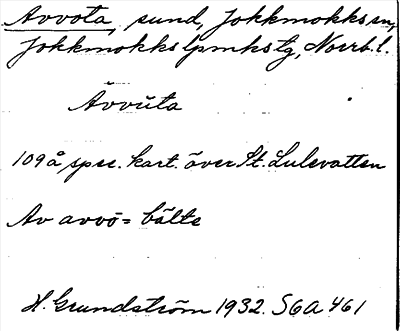 Avvota, sund, Jokkmokks sn,
Jokkmokks lpmks tg, Norrb. l.
Ávvūta
109 å spec. kart. över St. Lulevatten
Av avvō = bälte
H. Grundström 1932. SGA 461